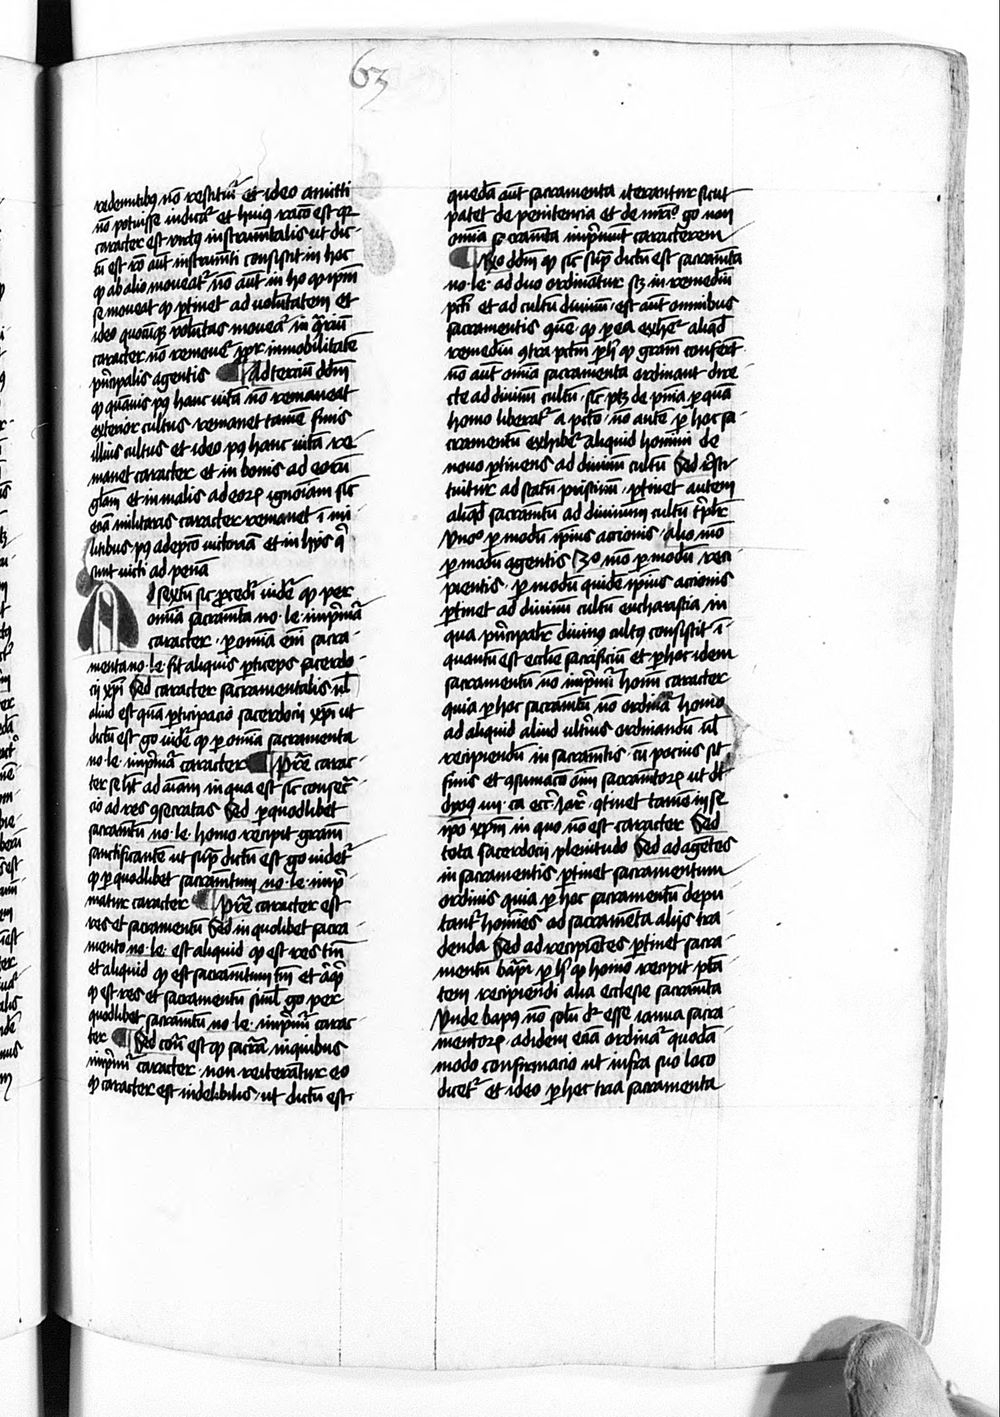 63
redeuntibus nō restituūr et ideo amitti
nō potuisse indicāt et huius racō est qr
caracter est virtus instrumētalis ut dic-
tū est rō aūt instrumēti consistit in hoc
qp ab alio moveatur nō aūt in ho qp ipm
se moveat qp ptinet ad volūtatem et
ideo quocūqȝ volūtas moveatʳ in
caracter nō removeʳ ppr inmobilitatē
prīcipalis agentis Ad terciū ddm
qp quāvis pꝰ hanc vitā nō remaneat
exterior cultus remanet tamē finis
illius cultus et ideo pꝰ hanc vitā re-
manet caracter et in bonis ad eorū
glam et in malis ad eorꝝ ignoīam sic
eciā militaris caracter remanet ī mi-
litibus pꝰ adeptā victoriam et in hijs qͥ
sunt victi ad penā
Ad sextū sic procedīʳ videʳ qp per
omīa sacramēta no·le· imprimāʳ
caracter · p omīa enī sacra-
menta no·le· fit aliquis pticeps sacerdo-
cij xpi Sed caracter sacramentalis nl
aliud est quā pticipacio sacerdocij xpi ut
dictū est go videʳ qp p omīa sacramenta
no·le· imprimāʳ caracter Pret carac-
ter se ht ad aīam in qua est sic consecra-
cio ad res qsecratas Sed p quodlibet
sacramētū no·le· homo recipit graciam
sanctificantē ut supͣ dictū est go videtʳ
qp p quodlibet sacramētum no·le· impri-
matur caracter Pret caracter est
res et sacramentū Sed in quolibet sacra-
mento no·le· est aliquid qp est res tm̄
et aliquid qp est sacramētum tm̄ et aliqd
qp est res et sacramentū simul go per
quodlibet sacramētū no·le· imprimiʳ carac-
ter Sed cont est qp sacrā in quibus
imprimiʳ caracter non reiterātur eo
qp caracter est indelibilis ut dictū est
quedā aūt sacramenta iterantur sicut
patet de penitencia et de mrīo go non
omīa sacramēta imprimūt caracterem
Rñdeo ddm qp sic supͣ dictū est sacramēta
no·le· ad duo ordinātur scȝ in remediū
pcti et ad cultū divinū est aūt omnibus
sacramentis qmune qp p ea exhibeʳ aliqd
remediū qtra pctm p hoc qp gram conferūt
nō aūt omīa sacramenta ordinant dire-
cte ad divinū cultū sic ptȝ de pnīa p quā
homo liberatʳ a pcto nō autē p hoc sa-
cramentū exhibeʳ aliquid homini de
novo ptinens ad divinū cultū Sed resti-
tuitur ad statū pristinū ptinet autem
aliqd sacramētū ad divinum cultū tplr
Vno p modū ipius accionis Alio mō
p modū agentis 3o mō p modū reci-
pientis p modū quidē ipius accionis
ptinet ad divinū cultū eucharistia in
qua principalr divinus cultus consistit ī-
quantū est ecclie sacrificiū et p hoc idem
sacramentū nō imprimiʳ homī caracter
quia p hoc sacramētū nō ordinaʳ homo
ad aliquid aliud ulterius agendū ul
recipiendū in sacramētis cū pocius sit
finis et qsumacō oīm sacramētorꝝ ut dt
dyoȝ iii ca eccʳ iarʳ qtinet tamē in se
ipō xpm in quo nō est caracter Sed
tota sacerdocij plenitudo Sed ad agētes
in sacramentis ptinet sacramentum
ordinis quia p hoc sacramentū depu-
tantʳ homīes ad sacramēta alijs tra-
denda Sed ad recipiētes ptinet sacra-
mentū baptismi p hoc qp homo recipit ptā-
tem recipiendi alia ecclesie sacramēta
Vnde baptꝰ nō solū dʳ esse ianua sacra-
mentorꝝ ad idem eciā ordināʳ quodā
modo confirmacio ut infra suo loco
diceʳ Et ideo p hec tria sacramenta